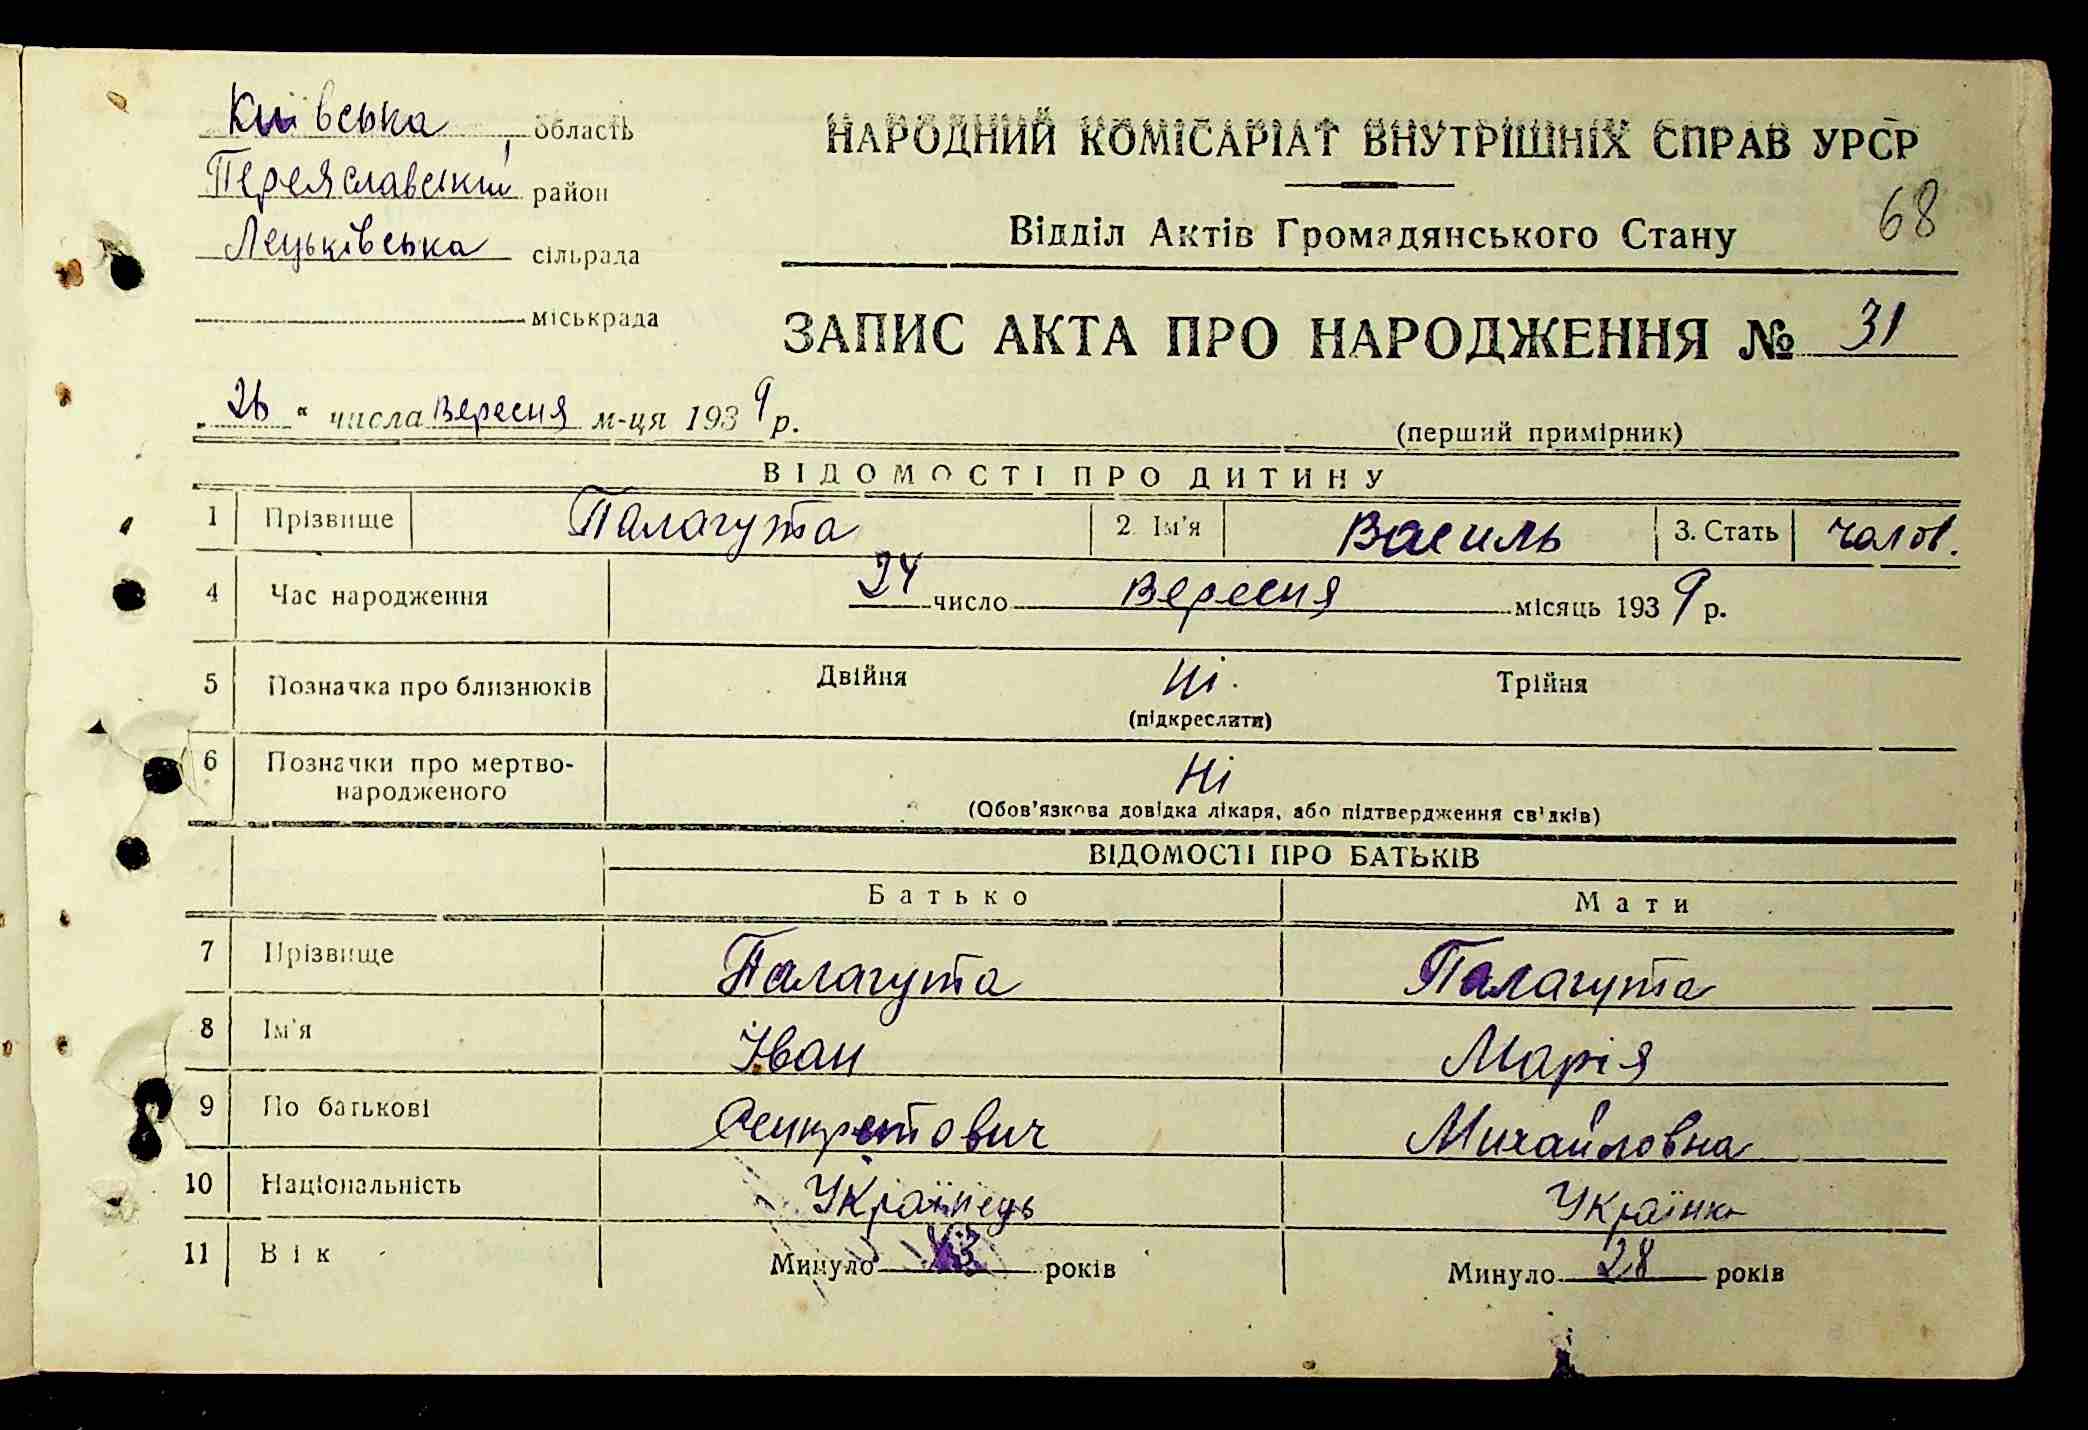 Київська область
Переяславський район
Лецьківська сільрада
міськрада
НАРОДНИЙ КОМІСАРІАТ ВНУТРІШНІХ СПРАВ УРСР
68
Відділ Актів Громадянського Стану
ЗАПИС АКТА ПРО НАРОДЖЕННЯ № 31
„26“ числа Вересня м-ця 1939 р.
(перший примірник)
ВІДОМОСТІ ПРО ДИТИНУ
1 Прізвище Палагута 2. Ім'я Василь 3. Стать чолов.
4 Час народження 24 число Вересня місяць 1939 р.
5 Позначка про близнюків Двійня Ні Трійня
(підкреслити)
6 Позначки про мертвонародженого Ні
(Обов'язкова довідка лікаря, або підтвердження св'дків)
ВІДОМОСТІ ПРО БАТЬКІВ
Батько Мати
7 Прізвище Палагута Палагута
8 Ім'я Іван Марія
9 По батькові Михайловна
10 Національність Українець Українка
11 Вік Минуло років Минуло 28 років